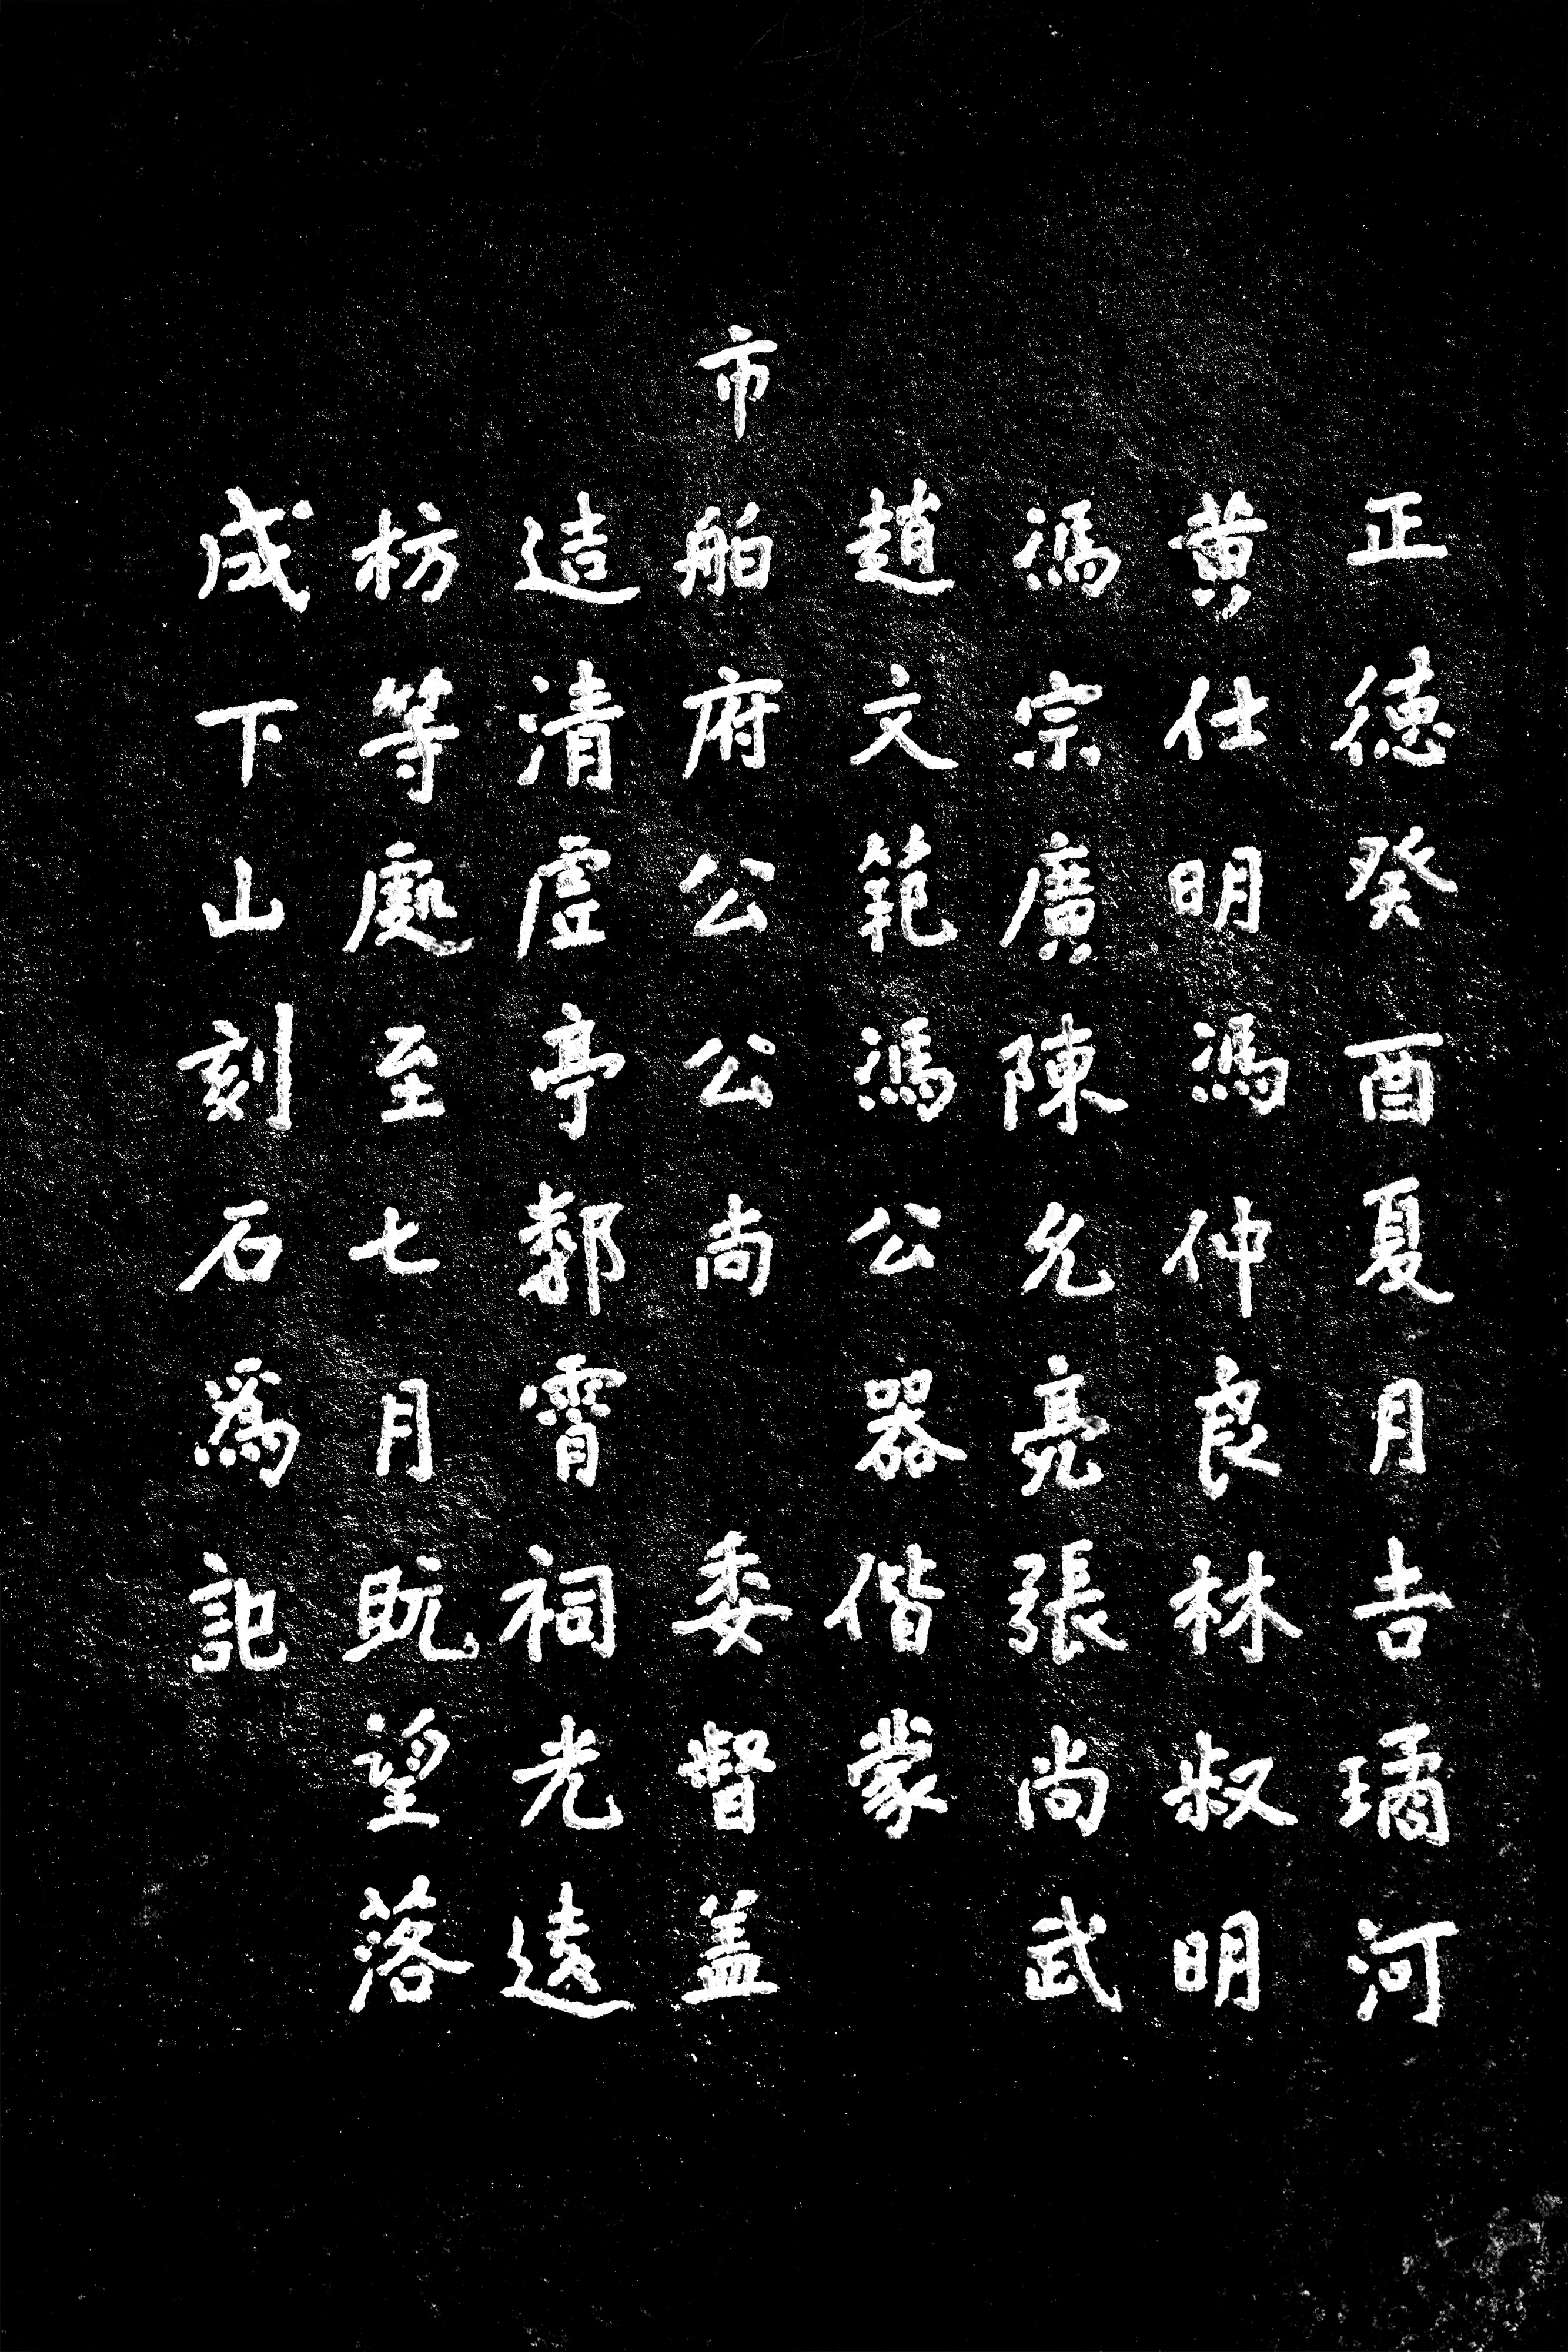 正德癸酉夏月吉璚河
黄仕明馮仲良林叔明
馮宗廣陳允亮張尚武
趙文範馮公器偕蒙
市舶府公公尚 委督蓋
造清虛亭鄰霄祠光遠
枋等處至七月既望落
成下山刻石爲記